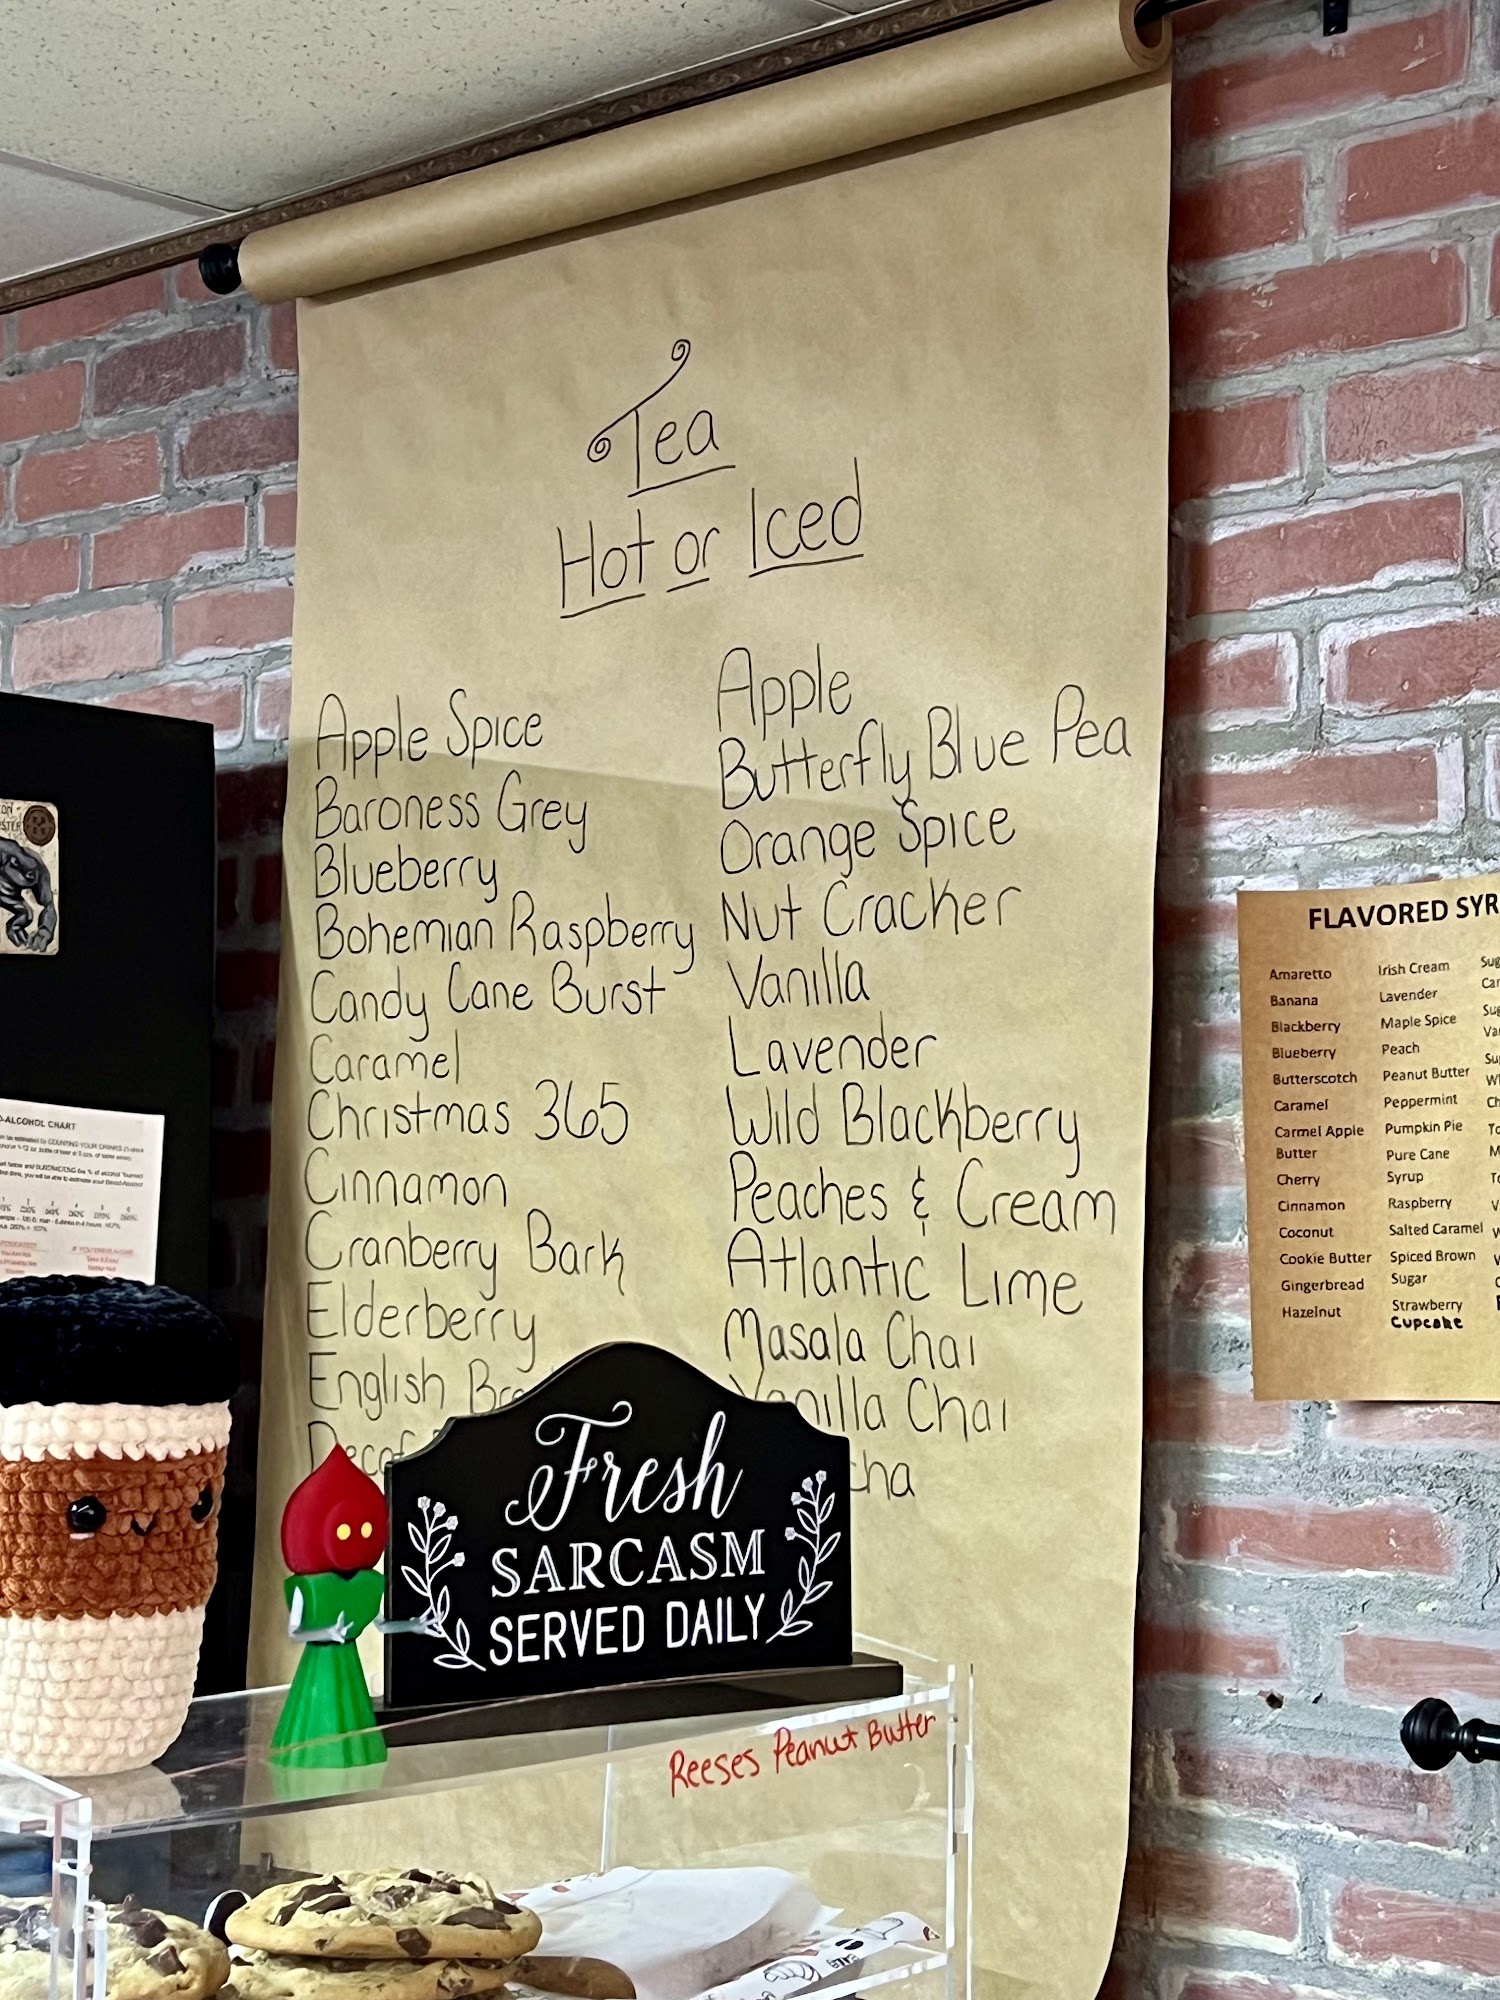 Tea
Hot or Iced
Apple Spice
Baroness Grey
Blueberry
Bohemian Raspberry
Candy Cane Burst
Caramel
Christmas 365
Cinnamon
Cranberry Bark
Elderberry
English
Decaf
Apple
Butterfly Blue Pea
Orange Spice
Nut Cracker
Vanilla
Lavender
Wild Blackberry
Peaches & Cream
Atlantic Lime
Masala Chai
Vanilla Chai
Fresh
SARCASM
SERVED DAILY
Reeses Peanut Butter
FLAVORED
Amaretto
Banana
Blackberry
Blueberry
Butterscotch
Caramel
Carmel Apple
Butter
Cherry
Cinnamon
Coconut
Cookie Butter
Gingerbread
Hazelnut
Irish Cream
Lavender
Maple Spice
Peach
Peanut Butter
Peppermint
Pumpkin Pie
Pure Cane
Syrup
Raspberry
Salted Caramel
Spiced Brown
Sugar
Strawberry
Cupcake
ALCOHOL CHART